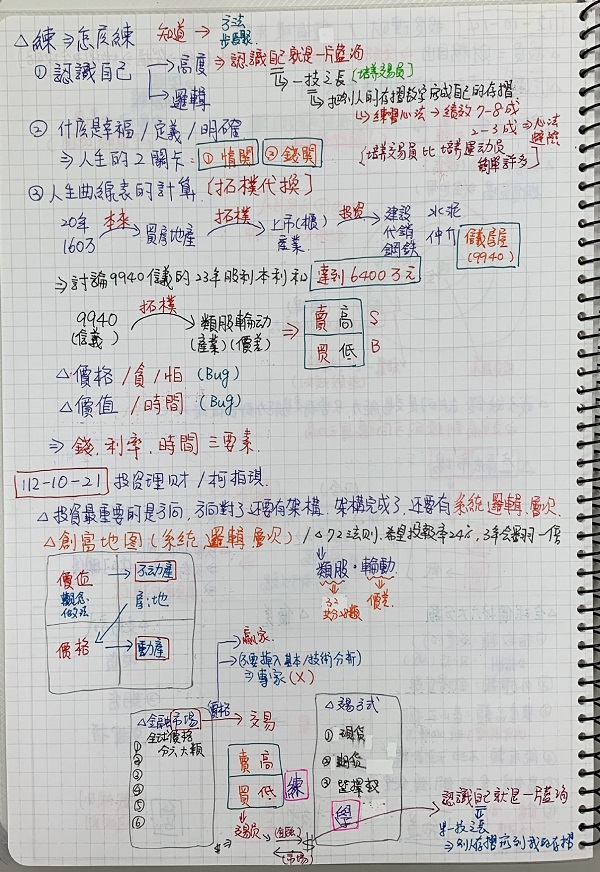 △練⇒怎麼練 知道→ 方法
步驟
① 認識自己 → 高度 ⇒ 認識自己就是一片藍海
→ 邏輯 ⇒ 一技之長 (培養交易員)
把別人的存摺數字变成自己的存摺
↳ 練習心法→績效7-8成
2-3成⇒心法
② 什麼是幸福/定義/明確
⇒人生的2關卡: ①情関 ②錢関
(培養交易員比培養運动員
簡單許多)
③ 人生曲線表的計算 (拓樸代換)
20年
160万 本來→ 買房地產 拓樸→ 上市(櫃)
產業 投資→ 建設 水泥
代銷 仲介
鋼鉄
信義房屋
(9940)
⇒討論9940信義的23年股利本利和 達到6400万元
9940
(信義) 拓樸→ 類股輪动
(產業)(價差) ⇒ 賣高 S
買低 B
△價格/貪/怕 (Bug)
△價值/時間 (Bug)
⇒錢.利率.時間三要素.
112-10-21 投资理財/柯指琪.
△投資最重要的是方向,方向對了还要有架構.架構完成了,还要有系統.邏輯.層次.
△創富地図(系統.邏輯.層次) / △72法則,希望投報率24%,3年会翻羽一倍
類股・輪動
價差.
價值
觀念
做法 → 不动產
房;地
價格 → 動產
贏家.
(不要掉入基本/技術分析)
⇒專家(X)
價格
△金融市場 → 交易
全球價格
分六大類
①
②
③
④
⑤
⑥
賣高
買低 練
交易員
(市場)
△交易方式
① 現貨
② 期货
③ 選擇权
學
認識自己就是一片藍海
一技之長
⇒別人存摺